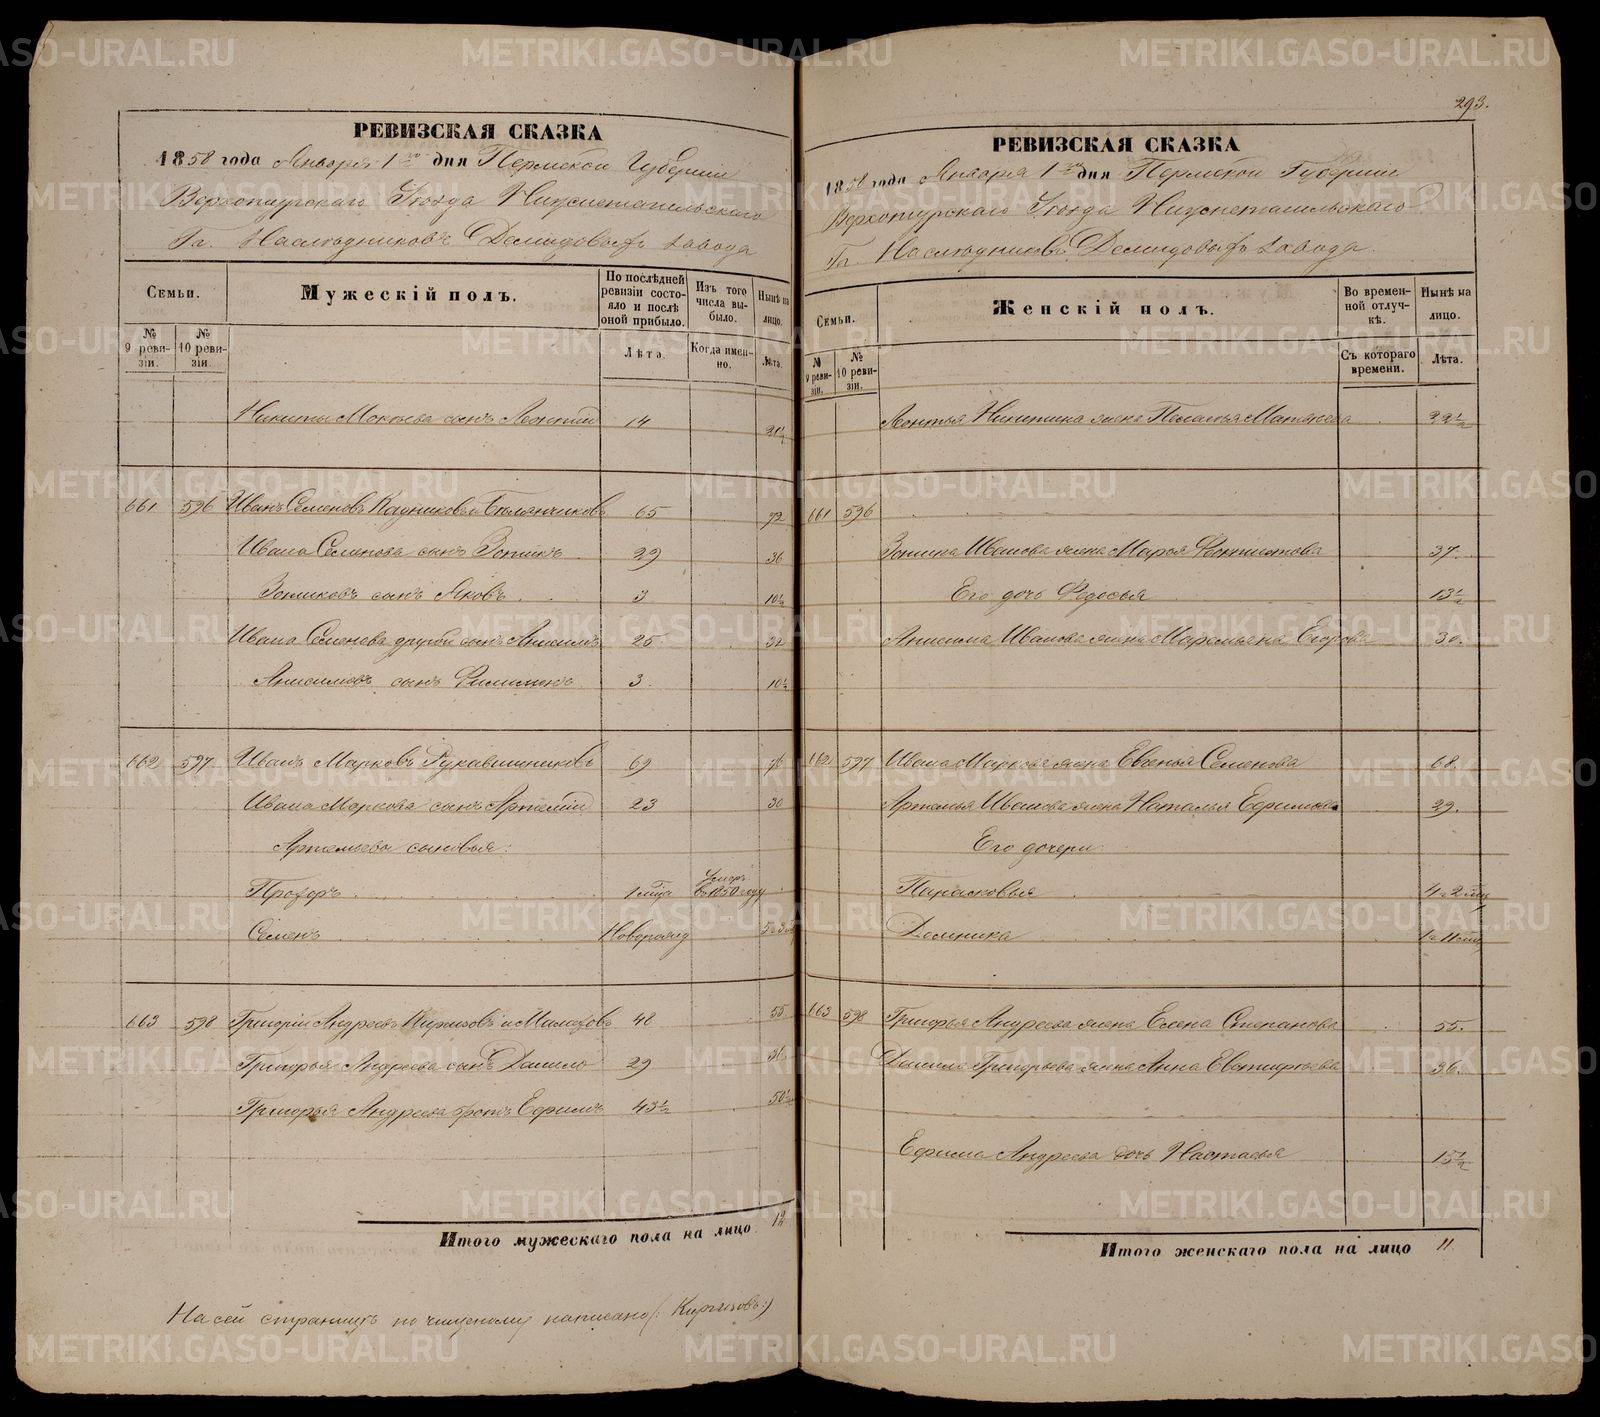 РЕВИЗСКАЯ СКАЗКА
1858 года Января 1го дня Пермской Губернiи
Верхотурскаго Уѣзда Нижнетагильскаго
Гг. Наслѣдниковъ Демидовыхъ завода
Семьи.
Мужескiй полъ.
По послѣдней ревизiи состояло и послѣ оной прибыло.
Изъ того числа выбыло.
Нынѣ на лицо.
№ 9 ревизiи.
№ 10 ревизiи.
Лѣта.
Когда именно.
Лѣта.
Никиты Мокѣева сынъ Леонтiй 14 21½
661 596 Иванъ Семеновъ Кадниковъ и Бѣлянчиковъ 65 72
Ивана Семенова сынъ Зотикъ 29 36
Зотиковъ сынъ Яковъ 3 10½
Ивана Семенова другой сынъ Анисимъ 25 32
Анисимовъ сынъ Филимонъ 3 10½
662 597 Иванъ Марковъ Рукавишниковъ 69 76
Ивана Маркова сынъ Артемiй 23 30
Артемьева сыновья:
Прохоръ 1 мѣца Умеръ въ 1850 году
Семенъ Новорожд 5 и 3 мѣ
663 598 Григорiй Андреевъ Киргизовъ и Малаховъ 48 55
Григорья Андреева сынъ Данило 29 36
Григорья Андреева братъ Ефимъ 43½ 50½
Итого мужескаго пола на лицо 12
На сей страницѣ по чищеному написано (: Киргизовъ :)
293.
РЕВИЗСКАЯ СКАЗКА
1858 года Января 1го дня Пермской Губернiи
Верхотурскаго Уѣзда Нижнетагильскаго
Гг. Наслѣдниковъ Демидовыхъ завода.
Семьи.
Женскiй полъ.
Во временной отлучкѣ.
Нынѣ на лицо.
№ 9 ревизiи.
№ 10 ревизiи.
Съ котораго времени.
Лѣта.
Леонтья Никитина жена Пелагья Матвѣева 22½
661 596
Зотика Иванова жена Марья 37.
Его дочь Федосья 13½
Анисима Иванова жена Маремьяна Егорова 30.
662 597 Ивана Маркова жена Евгенья Семенова 68.
Артемья Иванова жена Наталья Ефимова 29.
Его дочери:
Парасковья 4 и 2 мѣц
Домника 1 и 11 мѣц
663 598 Григорья Андреева жена Елена Степанова 55.
Данила Григорьева жена Анна Евстифѣева 36.
Ефима Андреева дочь Настасья 15½
Итого женскаго пола на лицо 11
METRIKI.GASO-URAL.RU